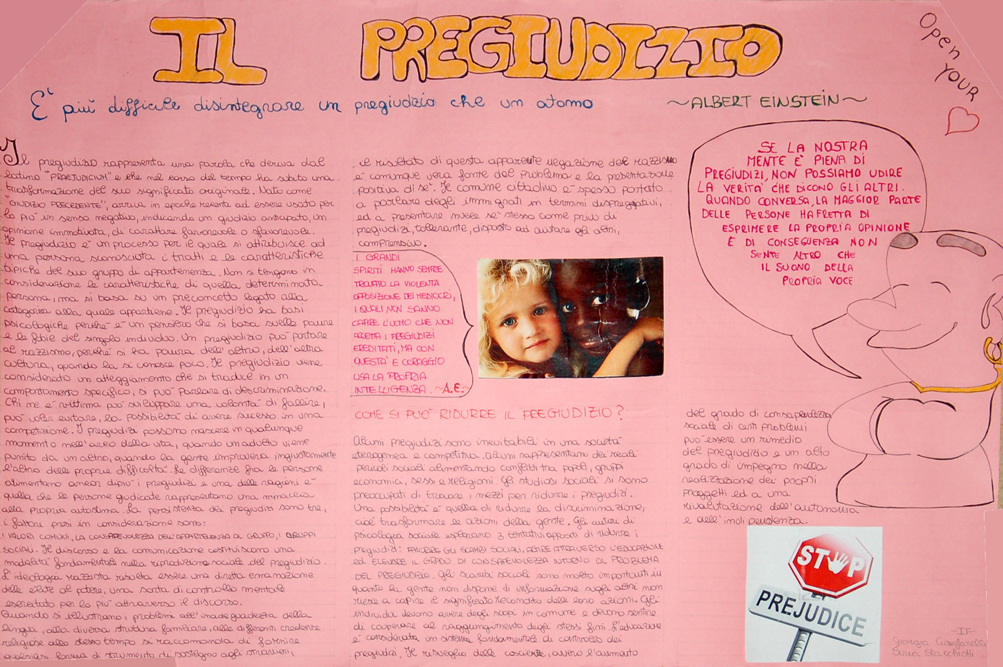 IL PREGIUDIZIO
Open YOUR
E' più difficile disintegrare un pregiudizio che un atomo ~ALBERT EINSTEIN~
Il pregiudizio rappresenta una parola che deriva dal
latino "PRAEJUDICIUM" e che nel corso del tempo ha subito una
trasformazione del suo significato originale. Nato come
"GIUDIZIO PRECEDENTE", arriva in epoche recenti ad essere usato per
lo più in senso negativo, indicando un giudizio anticipato, un
opinione immotivata, di carattere favorevole o sfavorevole.
Il pregiudizio è un processo per il quale si attribuisce ad
una persona sconosciuta i tratti e le caratteristiche
tipiche del suo gruppo di appartenenza. Non si tengono in
considerazione le caratteristiche di quella determinata
persona, ma si basa su un preconcetto legato alla
categoria alla quale appartiene. Il pregiudizio ha basi
psicologiche perché è un pensiero che si basa sulle paure
e le fobie del singolo individuo. Un pregiudizio può portare
al razzismo, perché si ha paura dell'altro, dell'altra
cultura, quando la si conosce poco. Il pregiudizio viene
considerato un atteggiamento che si traduce in un
comportamento specifico, si può parlare di discriminazione.
Chi ne è vittima può sviluppare una volontà di fallire,
può voler evitare, la possibilità di avere successo in una
competizione. I pregiudizi possono nascere in qualunque
momento nell'arco della vita, quando un adulto viene
punito da un altro, quando la gente rimprovera ingiustamente
l'altro delle proprie difficoltà. Le differenze fra le persone
alimentano ancor dipiù i pregiudizi e una delle ragioni è
quella che le persone giudicate rappresentano una minaccia
alla propria autostima. La persistenza dei pregiudizi sono tre,
i fattori presi in considerazione sono:
I VALORI COMUNI, LA CONSAPEVOLEZZA DELL'APPARTENENZA AL GRUPPO, I GRUPPI
SOCIALI. Il discorso e la comunicazione costituiscono una
modalità fondamentale nella riproduzione sociale del pregiudizio.
L'ideologia razzista risulta essere una diretta emanazione
delle elite al potere, una sorta di controllo mentale
esercitato per lo più attraverso il discorso.
Quando si sottolineano, problemi all'inadeguatezza della
lingua, alla diversa struttura familiare, alle differenti credenze
religiose allo stesso tempo si raccomanda di fornire
qualsiasi forma di strumento di sostegno agli stranieri,
e il risultato di questa apparente negazione del razzismo
è comunque vera fonte del problema e la presentazione
positiva di sé. Il comune cittadino è spesso portato
a parlare degli immigrati in termini dispregiativi,
ed a presentare invece se stesso come privo di
pregiudizi, tollerante, disposto ad aiutare gli altri,
comprensivo.
I GRANDI
SPIRITI HANNO SEMPRE
TROVATO LA VIOLENTA
OPPOSIZIONE DEI MEDIOCRI,
I QUALI NON SANNO
CAPIRE L'UOMO CHE NON
ACCETTA I PREGIUDIZI
EREDITATI, MA CON
ONESTÀ E CORAGGIO
USA LA PROPRIA
INTELLIGENZA. ~A.E.~
COME SI PUÒ RIDURRE IL PREGIUDIZIO?
Alcuni pregiudizi sono inevitabili in una società
eterogenea e competitiva. Alcuni rappresentano dei reali
pericoli sociali alimentando conflitti tra popoli, gruppi
economia, sessi e religioni. Gli studiosi sociali si sono
preoccupati di trovare i mezzi per ridurre i pregiudizi.
Una possibilità è quella di ridurre la discriminazione,
cioè trasformare le azioni della gente. Gli autori di
psicologia sociale espongono 3 tentativi opposti di ridurre i
pregiudizi: FAVORIRE GLI SCAMBI SOCIALI, AGIRE ATTRAVERSO L'EDUCAZIONE
ED ELEVARE IL GRADO DI CONSAPEVOLEZZA INTORNO AL PROBLEMA
DEL PREGIUDIZIO. Gli scambi sociali sono molto importanti in
quanto la gente non dispone di informazione sugli altri non
riesce a capire il significato recondito delle loro azioni. Gli
individui devono avere degli scopi in comune e devono sentire
di cooperare al raggiungimento degli stessi fini. L'educazione
è considerata un sistema fondamentale di controllo dei
pregiudizi. Il risveglio delle coscienze, ovvero l'aumento
SE LA NOSTRA
MENTE È PIENA DI
PREGIUDIZI, NON POSSIAMO UDIRE
LA VERITA' CHE DICONO GLI ALTRI.
QUANDO CONVERSA, LA MAGGIOR PARTE
DELLE PERSONE HA FRETTA DI
ESPRIMERE LA PROPRIA OPINIONE
E DI CONSEGUENZA NON
SENTE ALTRO CHE
IL SUONO DELLA
PROPRIA VOCE
del grado di consapevolezza
sociale di certi problemi
può essere un rimedio
del pregiudizio e un alto
grado di impegno nella
realizzazione dei propri
progetti ed a una
rivalutazione dell'autonomia
e dell'indipendenza.
STOP
PREJUDICE
-IF-
Giorgia